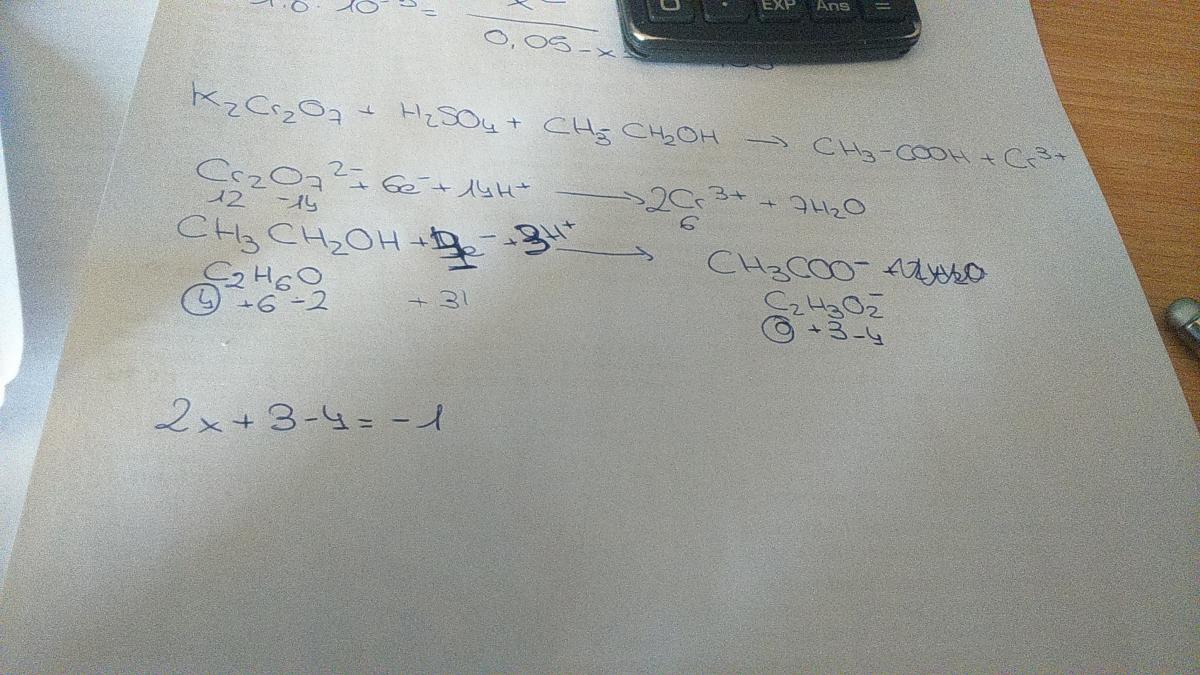 1.8 · 10⁻⁵ = x²
0,05 - x
EXP Ans =
K₂Cr₂O₇ + H₂SO₄ + CH₃-CH₂OH → CH₃-COOH + Cr³⁺
Cr₂O₇²⁻ + 6e⁻ + 14H⁺ → 2Cr³⁺ + 7H₂O
12 -14 6
CH₃CH₂OH + e⁻ + 3H⁺ → CH₃COO⁻
C₂H₆O C₂H₃O₂⁻
4 +6 -2 +31 0 +3-4
2x + 3 - 4 = -1